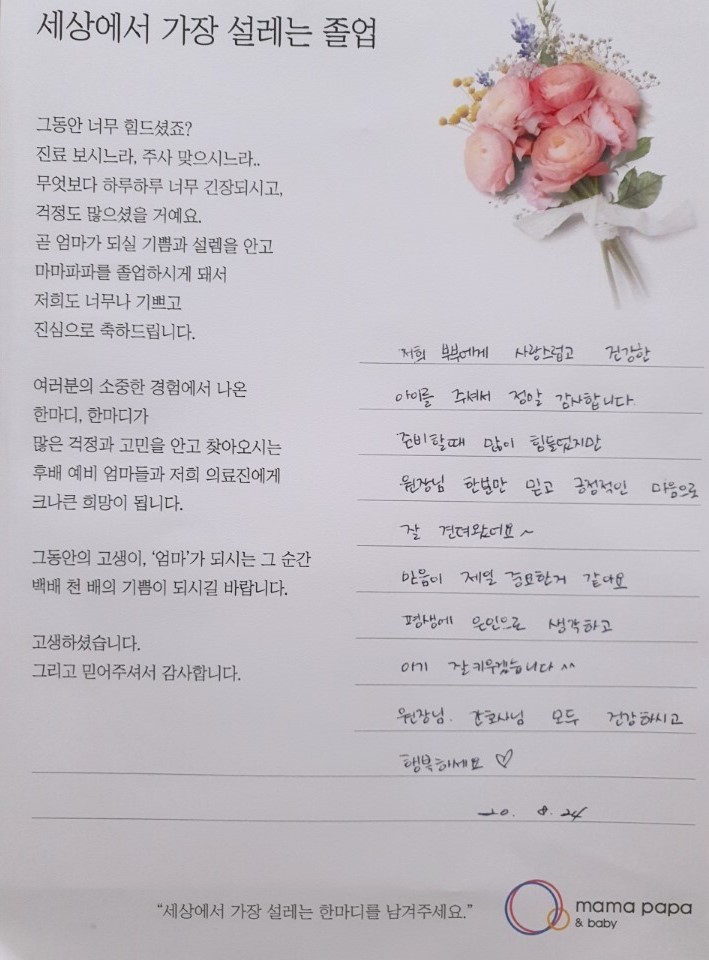 세상에서 가장 설레는 졸업
그동안 너무 힘드셨죠?
진료 보시느라, 주사 맞으시느라..
무엇보다 하루하루 너무 긴장되시고,
걱정도 많으셨을 거예요.
곧 엄마가 되실 기쁨과 설렘을 안고
마마파파를 졸업하시게 돼서
저희도 너무나 기쁘고
진심으로 축하드립니다.
여러분의 소중한 경험에서 나온
한마디, 한마디가
많은 걱정과 고민을 안고 찾아오시는
후배 예비 엄마들과 저희 의료진에게
크나큰 희망이 됩니다.
그동안의 고생이, '엄마'가 되시는 그 순간
백배 천 배의 기쁨이 되시길 바랍니다.
고생하셨습니다.
그리고 믿어주셔서 감사합니다.
저희 부부에게 사랑스럽고 건강한
아이를 주셔서 정말 감사합니다.
준비할때 많이 힘들었지만
원장님 한분만 믿고 긍정적인 마음으로
잘 견뎌왔어요~
마음이 제일 중요한거 같아요
평생에 은인으로 생각하고
아기 잘키우겠습니다^^
원장님. 간호사님 모두 건강하시고
행복하세요♡
20. 8. 24
"세상에서 가장 설레는 한마디를 남겨주세요."
mama papa
& baby